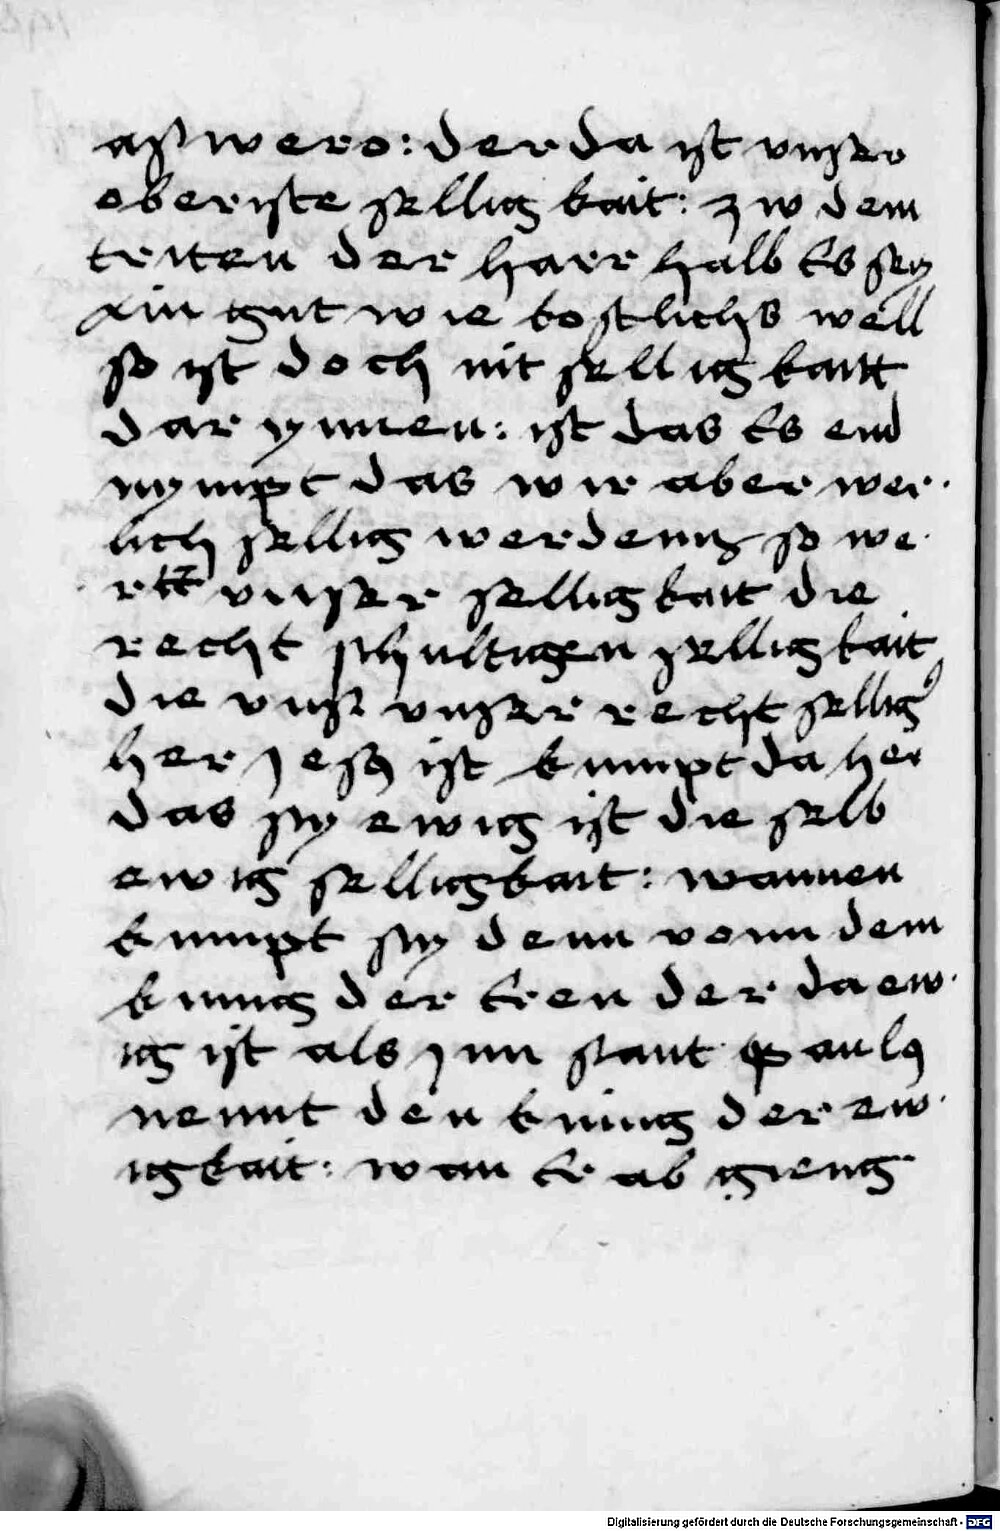 aſſwero: der da iſt vnſer
oberiſte ſellig kait: zw dem
triten der harr halb Es ſey
ain gut wie koſtlichs well
ſo iſt doch nit ſellig kaitt
dar ynnen: iſt das Es end
nympt das wir aber wer
lich ſellig werden ſo we
rtt vnſer ſelligkait die
recht ſchultigen ſelligkait
die vnſſ vnſer recht ſellig
her Jeſꝫ iſt kumpt da her
das ſiy ewig iſt die ſelb
ewig ſelligkait: wannen
kumpt ſiy denn vonn dem
kunig der Eren der da ew
ig iſt als Jnn ſant paulꝰ
nennt den kunig der ew
igkait: wan Er ab gieng
Digitalisierung gefördert durch die Deutsche Forschungsgemeinschaft - DFG